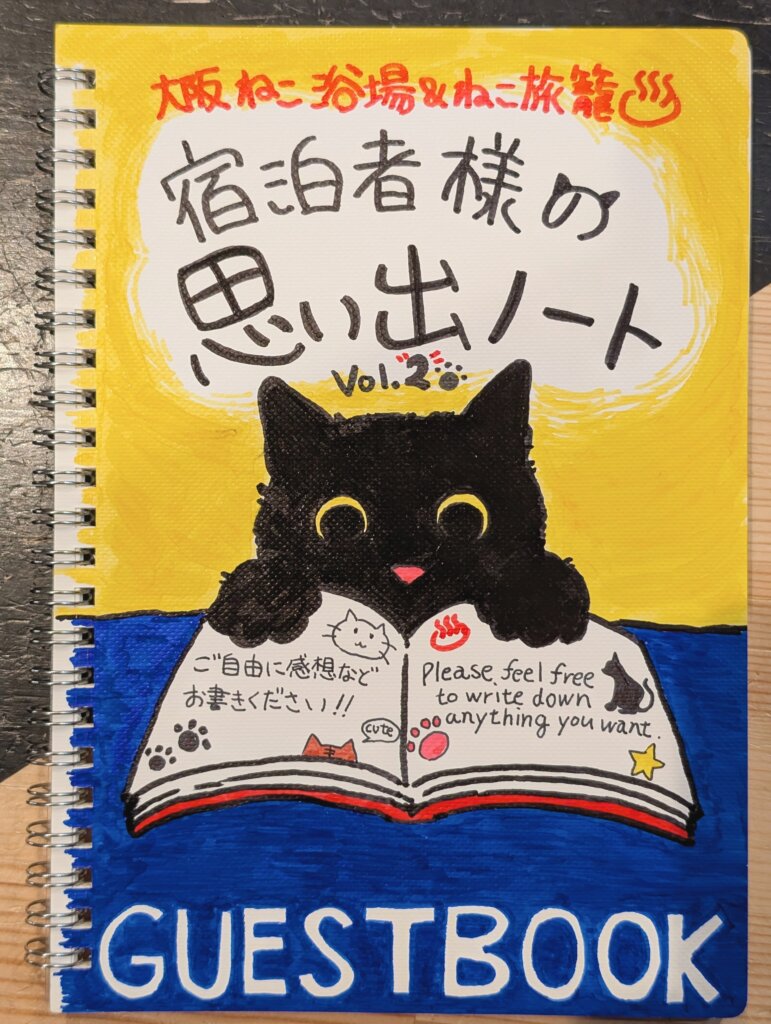 大阪ねこ浴場&ねこ旅籠♨
宿泊者様の
思い出ノート
Vol.2
ご自由に感想など
お書きください!!
cute
Please feel free
to write down
anything you want.
GUESTBOOK